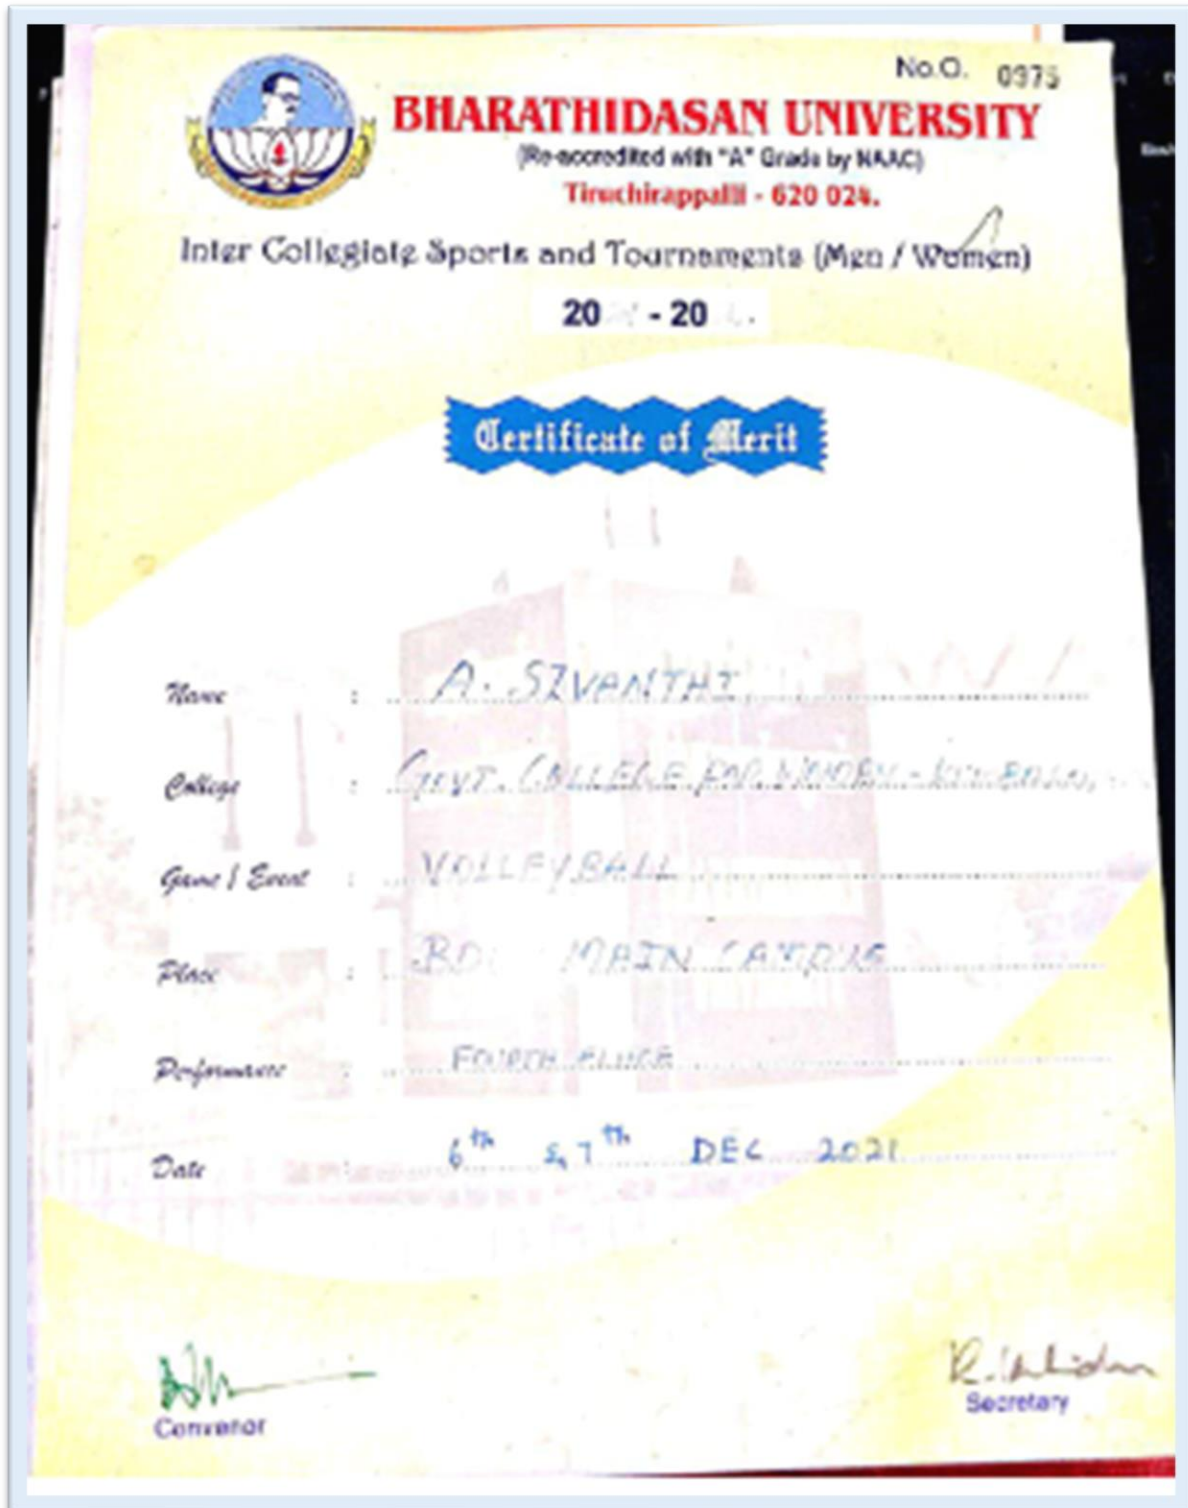 No.O. 0975
BHARATHIDASAN UNIVERSITY
(Re-accredited with "A" Grade by NAAC)
Tiruchirappalli - 620 024.
Inter Collegiate Sports and Tournaments (Men / Women)
20 - 20
Certificate of Merit
Name : A. SIVANTHI
College : GOVT. COLLEGE FOR WOMEN -
Game / Event : VOLLEYBALL
Place : MAIN CAMPUS
Performance : FOURTH PLACE
Date : 6th & 7th DEC 2021
Convenor
Secretary